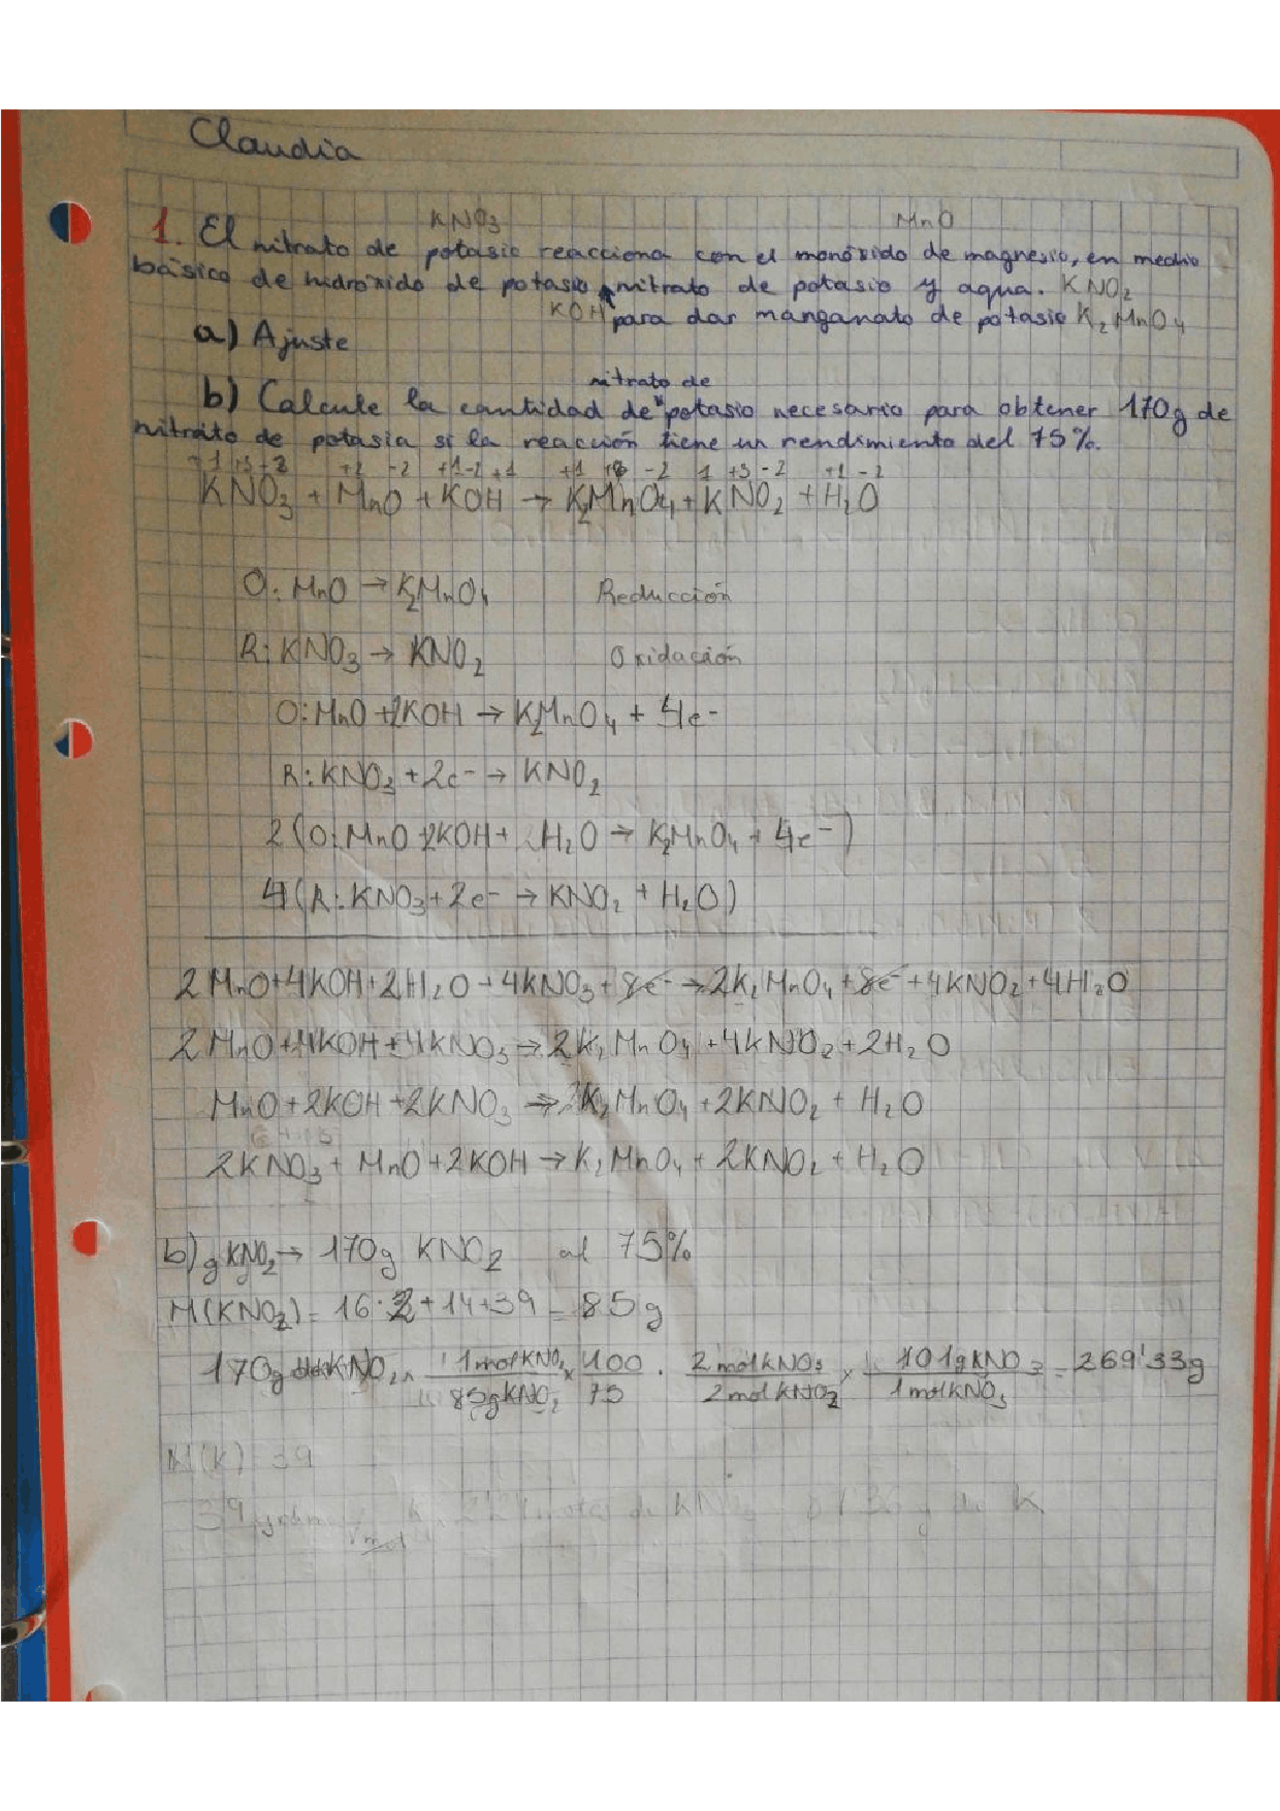 Claudia
KNO3 MnO
1. El nitrato de potasio reacciona con el monóxido de magnesio, en medio
básico de hidróxido de potasio nitrato de potasio y agua. KNO2
KOH para dar manganato de potasio K2MnO4
a) Ajuste
nitrato de
b) Calcule la cantidad de potasio necesario para obtener 170g de
nitrito de potasio si la reacción tiene un rendimiento del 75%.
+1 +5 -2 +2 -2 +1 -2 +1 +1 +6 -2 1 +3 -2 +1 -2
KNO3 + MnO + KOH → K2MnO4 + KNO2 + H2O
O: MnO → K2MnO4 Reducción
R: KNO3 → KNO2 Oxidación
O: MnO + 2KOH → K2MnO4 + 4e-
R: KNO3 + 2e- → KNO2
2(O: MnO + 2KOH + H2O → K2MnO4 + 4e-)
4(R: KNO3 + 2e- → KNO2 + H2O)
2MnO + 4KOH + 2H2O + 4KNO3 + 8e- → 2K2MnO4 + 8e- + 4KNO2 + 4H2O
2MnO + 4KOH + 4KNO3 → 2K2MnO4 + 4KNO2 + 2H2O
MnO + 2KOH + 2KNO3 → K2MnO4 + 2KNO2 + H2O
2KNO3 + MnO + 2KOH → K2MnO4 + 2KNO2 + H2O
b) g KNO2 → 170g KNO2 al 75%
M(KNO2) = 16·2+14+39 = 85g
170g KNO2 x 1molKNO2 / 85gKNO2 x 100 / 75 · 2molKNO3 / 2molKNO2 x 101gKNO3 / 1molKNO3 = 269'33g
M(K) 39
39 mol de K